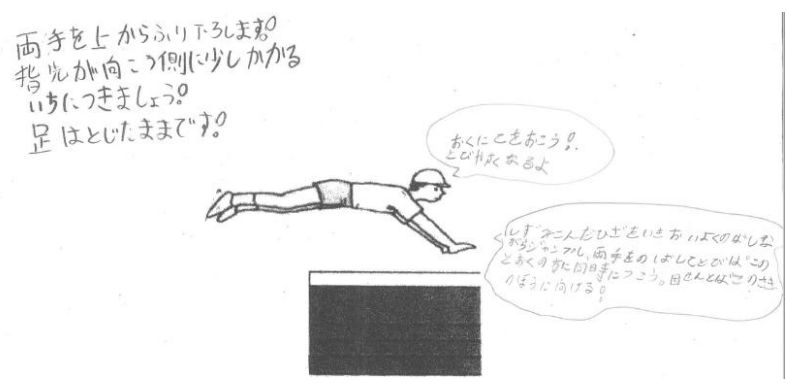 両手を上からふり下ろします。
指先が向こう側に少しかかる
いちにつきましょう。
足はとじたままです。
おくに をおこう!
とびやすくなるよ
しずみこんだひざをいきおいよくのばしな
がらジャンプし、両手をのばしてとびばこの
とおくの方に同時につこう。目せんとばこのさき
のほうに向ける!